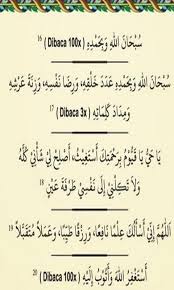 سُبْحَانَ اللهِ وَبِحَمْدِهِ (Dibaca 100x) 16
سُبْحَانَ اللهِ وَبِحَمْدِهِ عَدَدَ خَلْقِهِ، وَرِضَا نَفْسِهِ، وَزِنَةَ عَرْشِهِ
وَمِدَادَ كَلِمَاتِهِ (Dibaca 3x) 17
يَا حَيُّ يَا قَيُّوْمُ بِرَحْمَتِكَ أَسْتَغِيْثُ، أَصْلِحْ لِيْ شَأْنِيْ كُلَّهُ
وَلاَ تَكِلْنِيْ إِلَى نَفْسِيْ طَرْفَةَ عَيْنٍ 18
اللَّهُمَّ إِنِّيْ أَسْأَلُكَ عِلْمًا نَافِعًا، وَرِزْقًا طَيِّبًا، وَعَمَلاً مُتَقَبَّلاً 19
أَسْتَغْفِرُ اللهَ وَأَتُوْبُ إِلَيْهِ (Dibaca 100x) 20